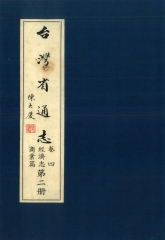 台灣省通志
陳大慶
卷四
經濟志
商業篇
第二冊